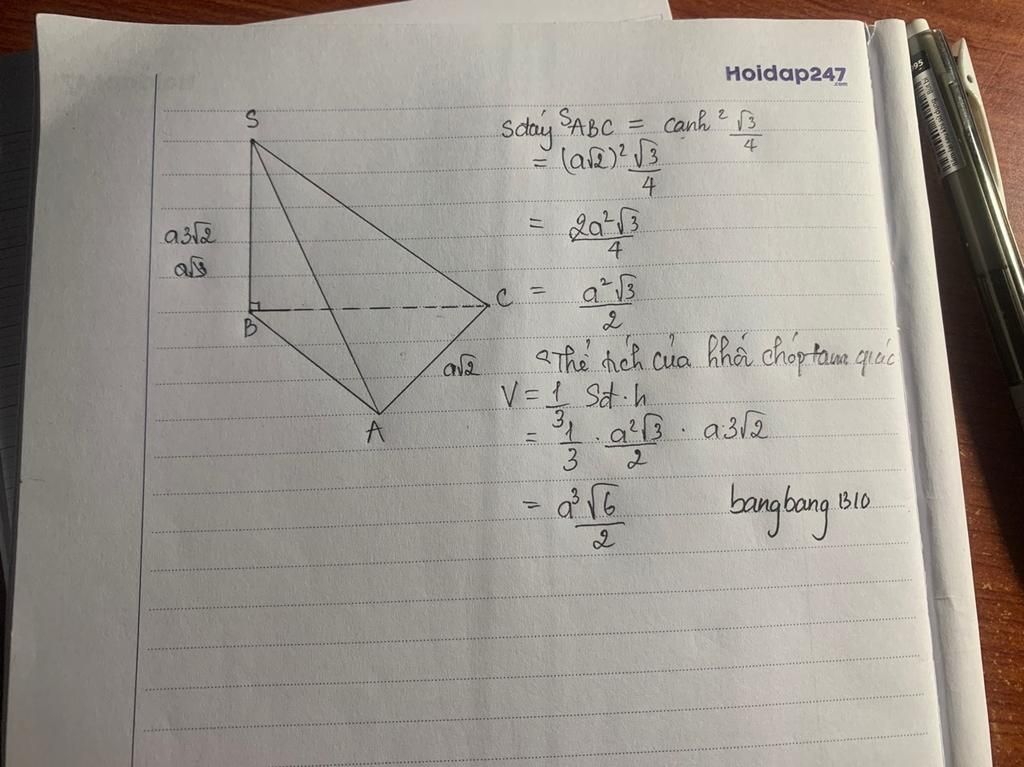 Hoidap247
.com
S
a3√2
a√3
B
C
a√2
A
Sđáy SABC = cạnh² √3/4
= (a√2)² √3/4
= 2a²√3/4
= a²√3/2
Thể tích của khối chóp tam giác
V = 1/3 Sđ.h
= 1/3 . a²√3/2 . a3√2
= a³√6/2
bangbang1310